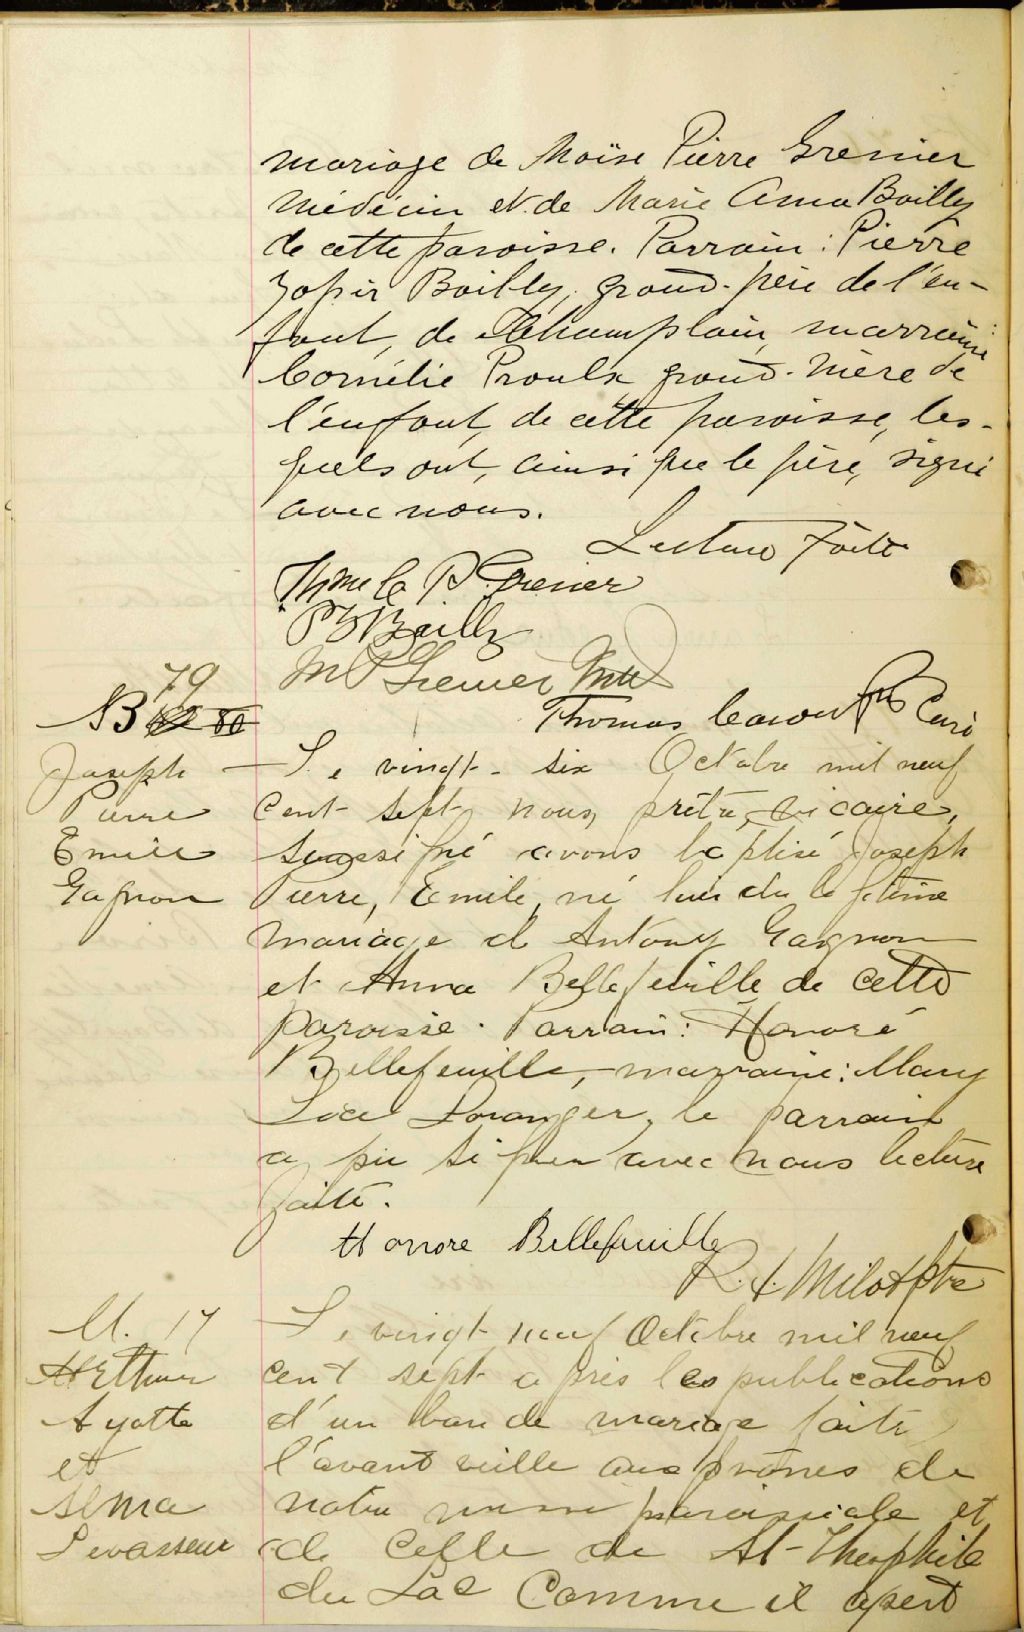 mariage de Moïse Pierre Grenier
médecin et de Marie Anna Bailly
de cette paroisse. Parrain : Pierre
Zéphir Bailly, grand-père de l'en-
fant, de Champlain, marraine
Cornélie Proulx grand-mère de
l'enfant, de cette paroisse, les-
quels ont, ainsi que le père, signé
avec nous.
Lecture faite
P. Grenier
P Z Bailly
M P Grenier
Thomas Caron Ptre Curé
79
B 80
Joseph
Pierre
Emile
Gagnon
Le vingt-six Octobre mil neuf
cent sept nous, prêtre, vicaire,
soussigné avons baptisé Joseph
Pierre, Emile, né du légitime
mariage de Antony Gagnon
et Anna Bellefeuille de cette
paroisse. Parrain : Honoré
Bellefeuille, marraine : Mary
Loranger, le parrain
a pu signer avec nous lecture
faite.
Honore Bellefeuille
Milot ptre
M. 17
Arthur
Ayotte
et
Alma
Levasseur
Le vingt neuf Octobre mil neuf
cent sept après les publications
d'un ban de mariage faite
l'avant veille aux prônes de
notre messe paroissiale et
de celle de St-Théophile
du Lac Comme il apert